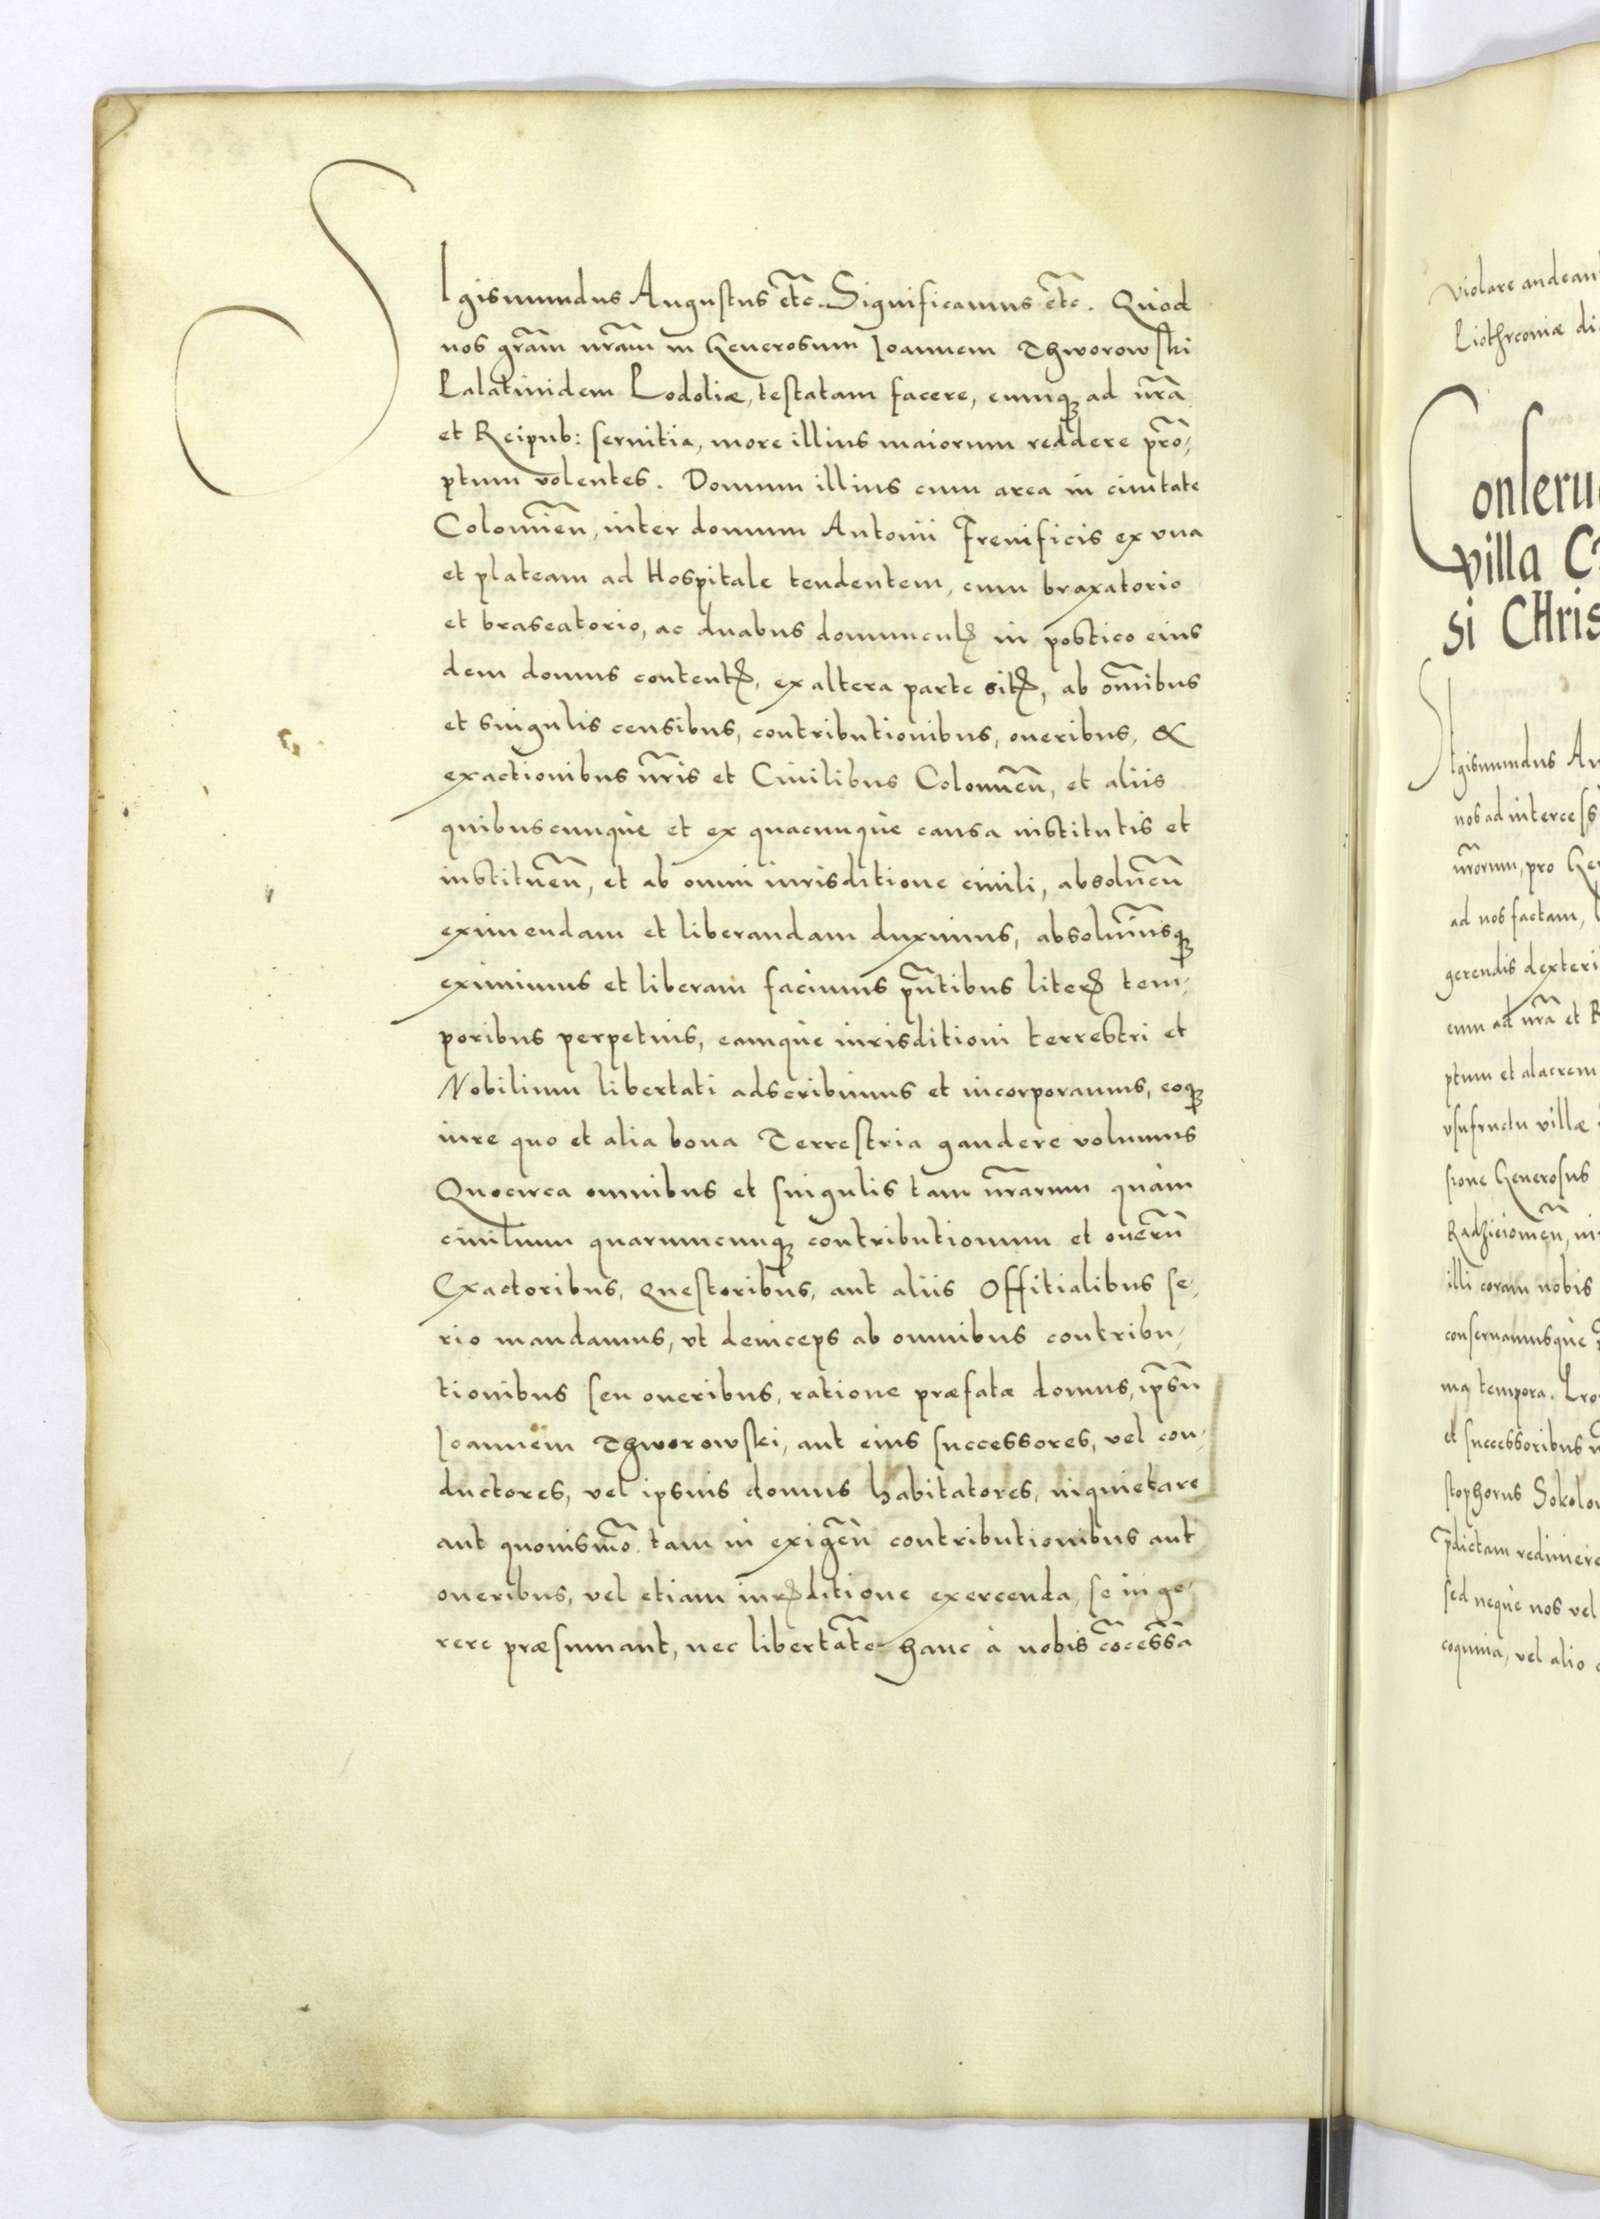 SIgismundus Augustus etc̃. Significamus etc̃. Quod
nos gr̃am nr̃am in Generosum Ioannem Thworowski
Palatinidem Podoliæ, testatam facere, eumq3 ad nr̃a
et Reipub: seruitia, more illius maiorum reddere prõ,
ptum volentes. Domum illius cum area in ciuitate
Colomien̄, inter domum Antonii Frenificis ex vna
et plateam ad Hospitale tendentem, cum braxatorio
et braseatorio, ac duabus domunculꝭ in postico eius
dem domus contentꝭ, ex altera parte sitꝭ, ab om̃ibus
et singulis censibus, contributionibus, oneribus, &
exactionibus nr̃is et Ciuilibus Colomien̄, et aliis
quibuscunquè et ex quacunquè causa institutis et
instituen̄, et ab omni iurisditione ciuili, absoluen̄
eximendam et liberandam duximus, absoluim̃usq3
eximimus et liberam facimus pñtibus literꝭ tem,
poribus perpetuis, eamquè iurisditioni terrestri et
Nobilium libertati adscribimus et incorporamus, eoq3
iure quo et alia bona Terrestria gaudere volumus
Quocirca omnibus et singulis tam nr̃arum quàm
ciuilium quarumcunq3 contributionum et onerū
Exactoribus, Questoribus, aut aliis Offitialibus se,
rio mandamus, vt deinceps ab omnibus contribu,
tionibus seu oneribus, ratione præfatæ domus, ip̃sū
Ioannem Thworowski, aut eius successores, vel con,
ductores, vel ipsius domus habitatores, inquietare
aut quouism̃o tam in exigen̄ contributionibus aut
oneribus, vel etiam iurꝭditione exercenda, se inge,
rere præsumant, nec libertatẽ hanc à nobis cõcessã
violare audeant
Piothrconiæ di
Conseru
villa C
si CHris
SIgismundus Au
nos ad intercess
nr̃orum, pro Ge
ad nos factam,
gerendis dexteri
eum ad nr̃a et R
ptum et alacrem
vsufructu villæ
sione Generosus
Radzieiowien̄,
illi coram nobis
conseruamusquè
tempora. Pro
et successoribus
stophorus Sokolo
p̃dictam redimere
sed nequè nos vel
vel alio